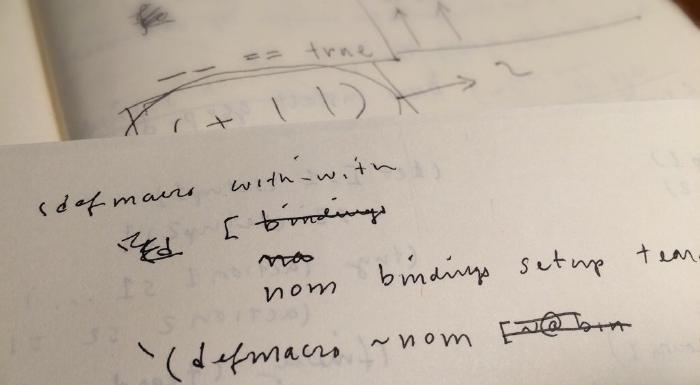 __ == true
(+ 1 1) → 2
(defmacro with-with
[ bindings
no
nom bindings setup tear
`(defmacro ~nom [~@bin